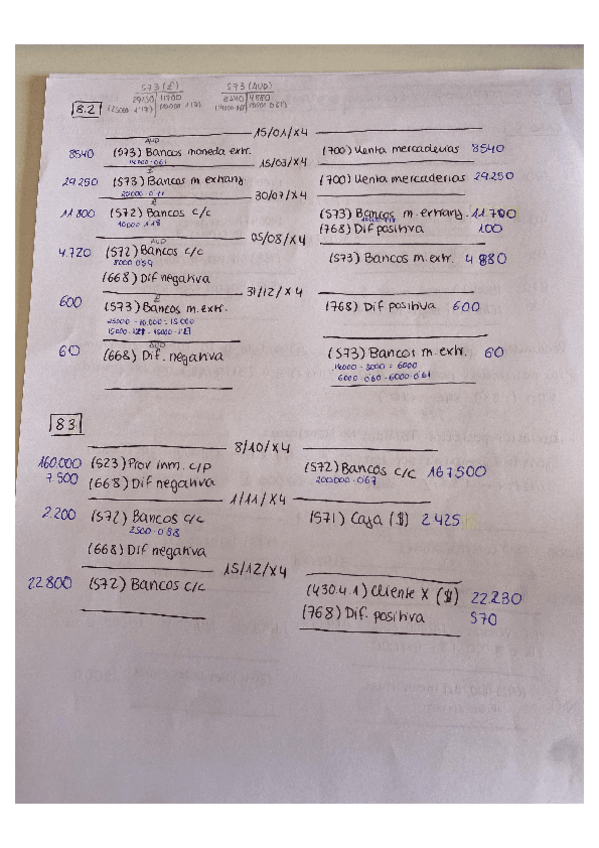 573 (£) 573 (AUD)
29250 11700 8540 4880
8.2
15/01/X4
AUD
8540 (573) Bancos moneda extr. (700) Venta mercaderias 8540
14000·0'61
15/03/X4
£
29.250 (573) Bancos m extranj (700) Venta mercaderias 29.250
30/07/X4
£
11.800 (572) Bancos c/c (573) Bancos m. extranj. 11.700
10000·1'18 (768) Dif positiva 100
05/08/X4
AUD
4.720 (572) Bancos c/c (573) Bancos m. extr. 4.880
8000·0'59
(668) Dif negativa
31/12/X4
£
600 (573) Bancos m. extr. (768) Dif positiva 600
25000 - 10.000 = 15000
AUD
60 (668) Dif. negativa (573) Bancos m. extr. 60
14000 - 8000 = 6000
6000·0'60 - 6000·0'61
8.3
8/10/X4
160.000 (523) Prov inm. c/p (572) Bancos c/c 167.500
7.500 (668) Dif negativa 250.000·0'67
1/11/X4
2.200 (572) Bancos c/c (571) Caja ($) 2.425
2500·0'88
(668) Dif negativa
15/12/X4
22.800 (572) Bancos c/c (430.4.1) Cliente X ($) 22.230
(768) Dif. positiva 570